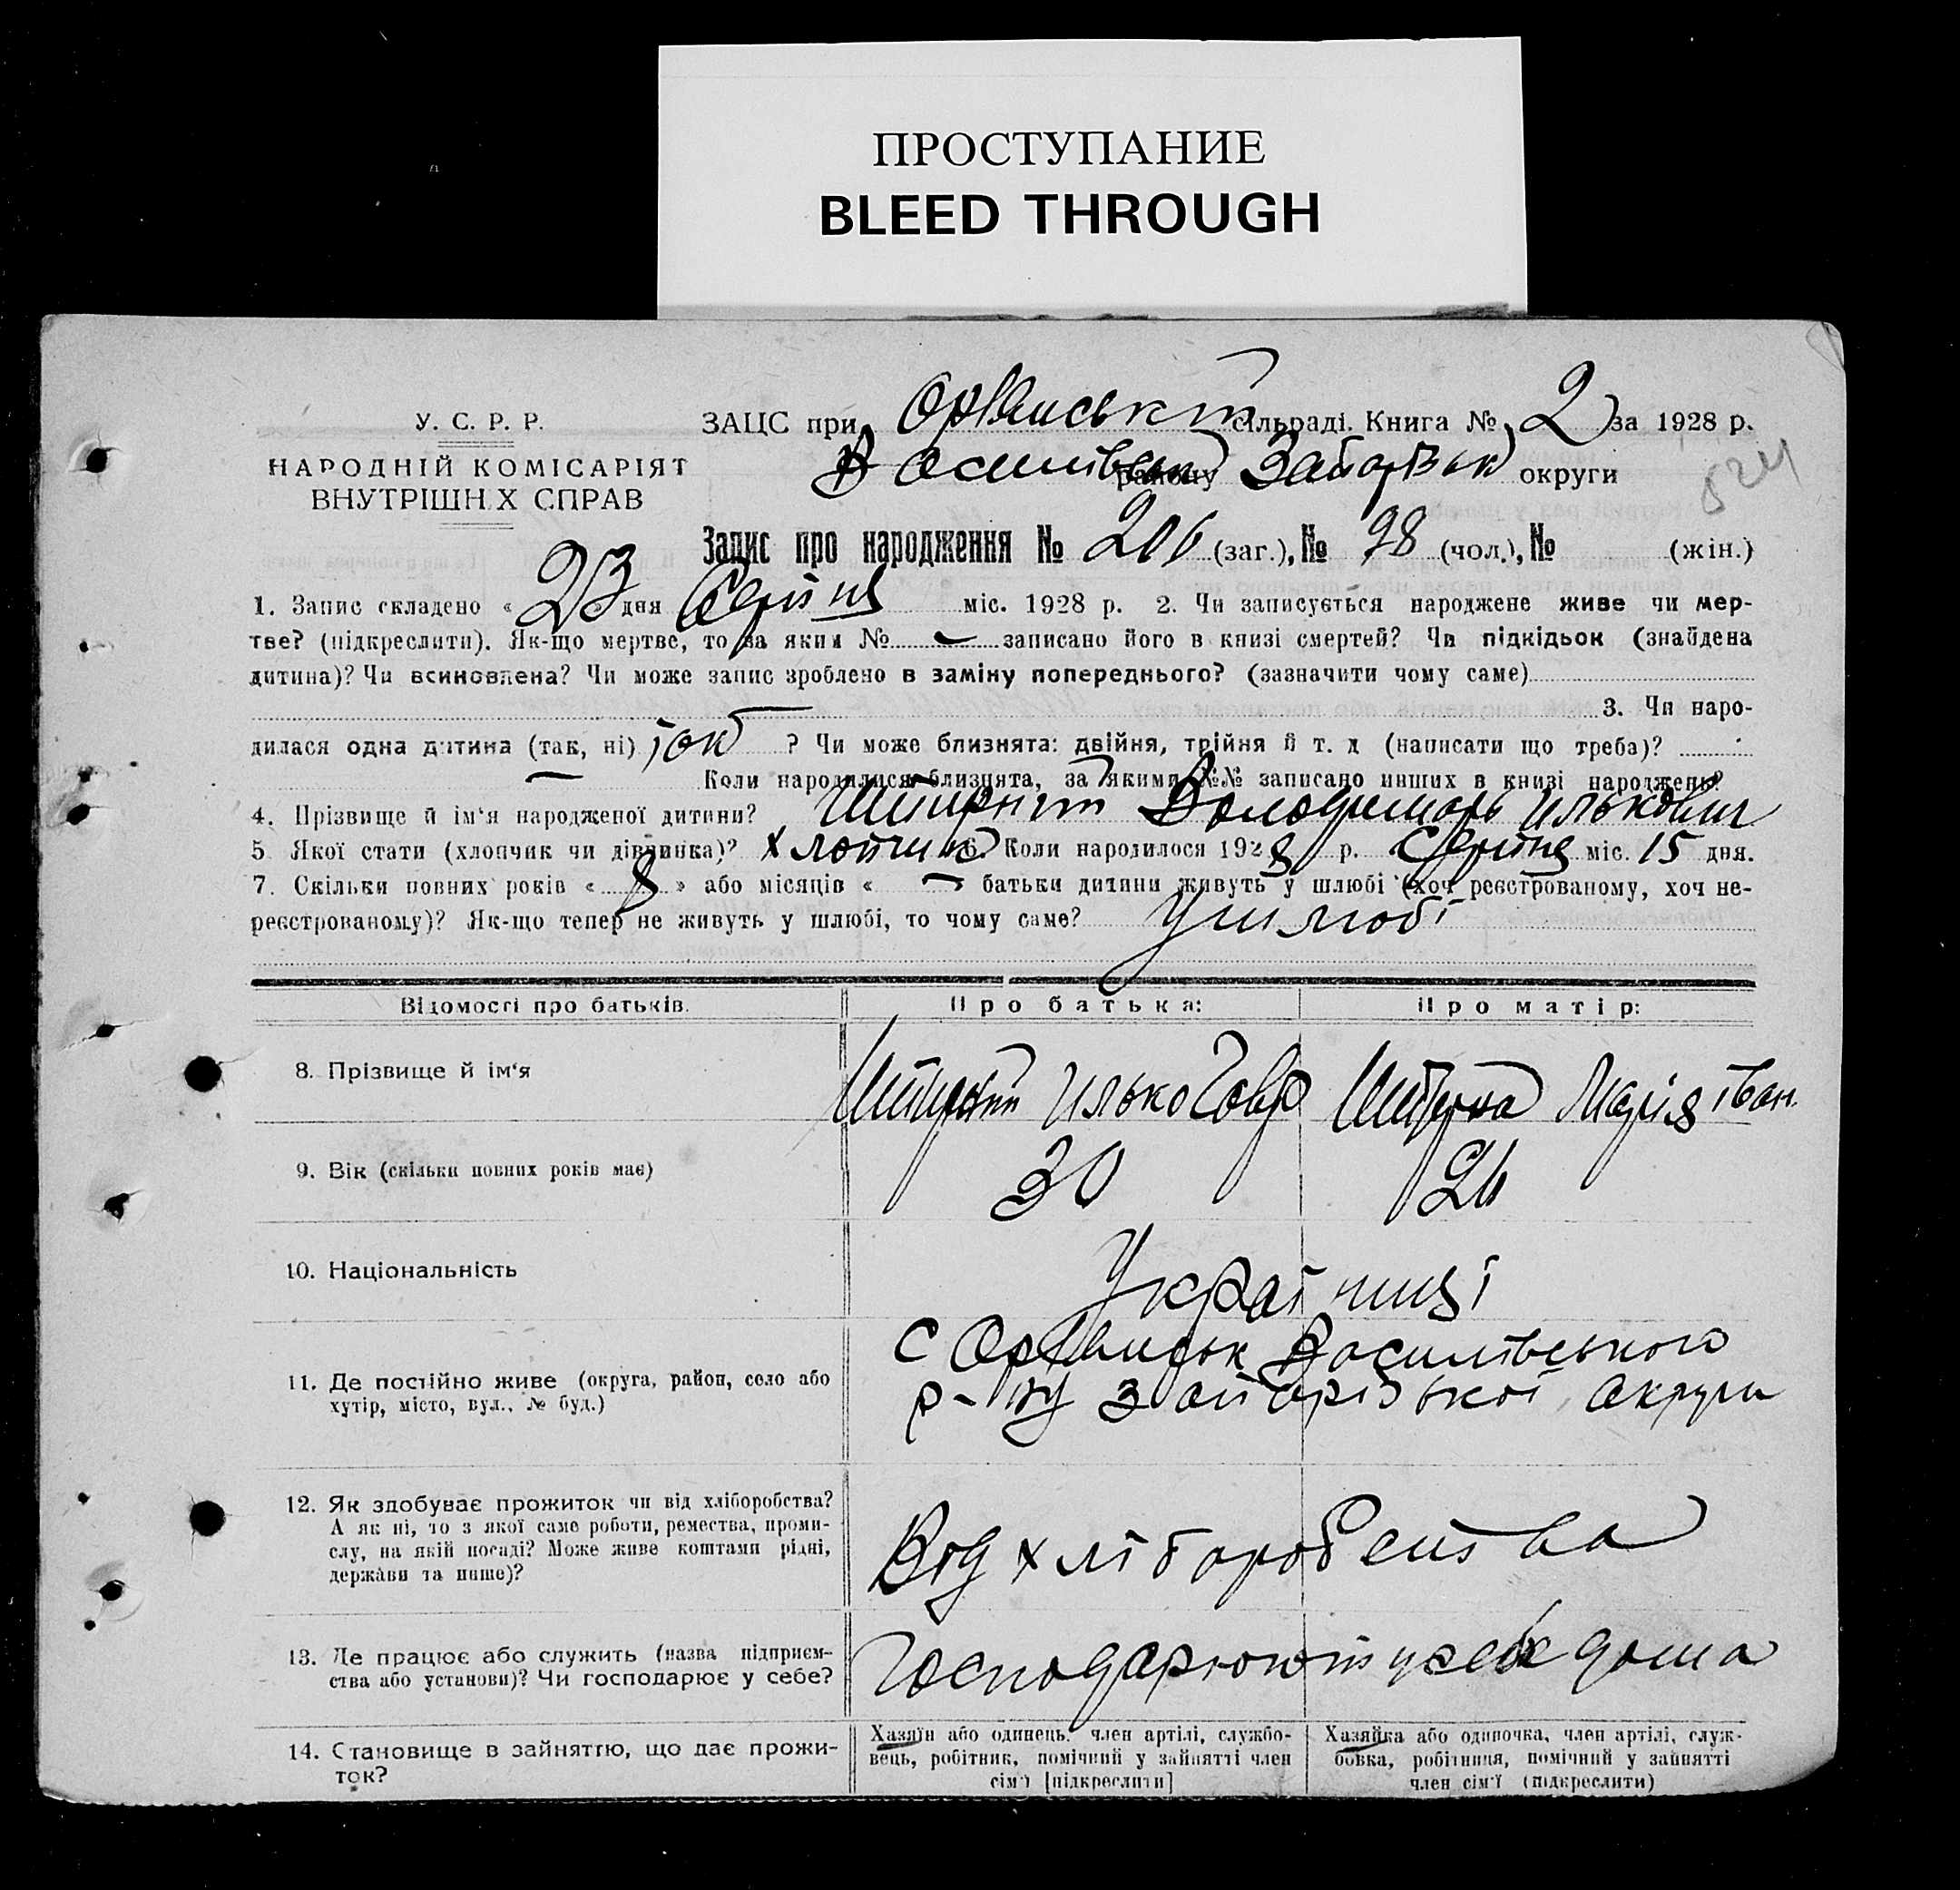 ПРОСТУПАНИЕ
BLEED THROUGH
У. С. Р. Р.
НАРОДНІЙ КОМІСАРІЯТ
ВНУТРІШН Х СПРАВ
ЗАЦС при сільраді. Книга № 2 за 1928 р.
району округи
524
Запис про народження № 206 (заг.), № 98 (чол.), № (жін.)
1. Запис складено « 23 » дня Серпня міс. 1928 р. 2. Чи записується народжене живе чи мер-
тве? (підкреслити). Як-що мертве, то за яким № — записано його в книзі смертей? Чи підкідьок (знайдена
дитина)? Чи всиновлена? Чи може запис зроблено в заміну попереднього? (зазначити чому саме)
3. Чи наро-
дилася одна дитина (так, ні) ? Чи може близнята: двійня, трійня й т. д (написати що треба)?
— Коли народилися близнята, за якими №№ записано инших в книзі народжень?
4. Прізвище й ім'я народженої дитини? Володимирь Илькович
5 Якої стати (хлопчик чи дівчинка)? Хлопчик 6. Коли народилося 1928 р. Серпня міс. 15 дня.
7. Скільки повних років « 8 » або місяців « — » батьки дитини живуть у шлюбі (хоч реєстрованому, хоч не-
реєстрованому)? Як-що тепер не живуть у шлюбі, то чому саме? У шлюбі
Відомості про батьків. Про батька: Про матір:
8. Прізвище й ім'я Илько Гавр Марія Іван.
9. Вік (скільки повних років має) 30 26
10. Національність Українці
11. Де постійно живе (округа, район, село або
хутір, місто, вул., № буд.)
С Василівського
р-ну Запорізької округи
12. Як здобуває прожиток чи від хліборобства?
А як ні, то з якої саме роботи, ремества, проми-
слу, на якій посаді? Може живе коштами рідні,
держави та инше)?
Від хліборобства
13. Де працює або служить (назва підприєм-
ства або установи)? Чи господарює у себе?
Господарюють у себе дома
14. Становище в зайняттю, що дає прожи-
ток?
Хазяїн або одинець, член артілі, службо-
вець, робітник, помічний у зайнятті член
сім'ї [підкреслити]
Хазяйка або одиночка, член артілі, служ-
бовка, робітниця, помічний у зайнятті
член сім'ї (підкреслити)